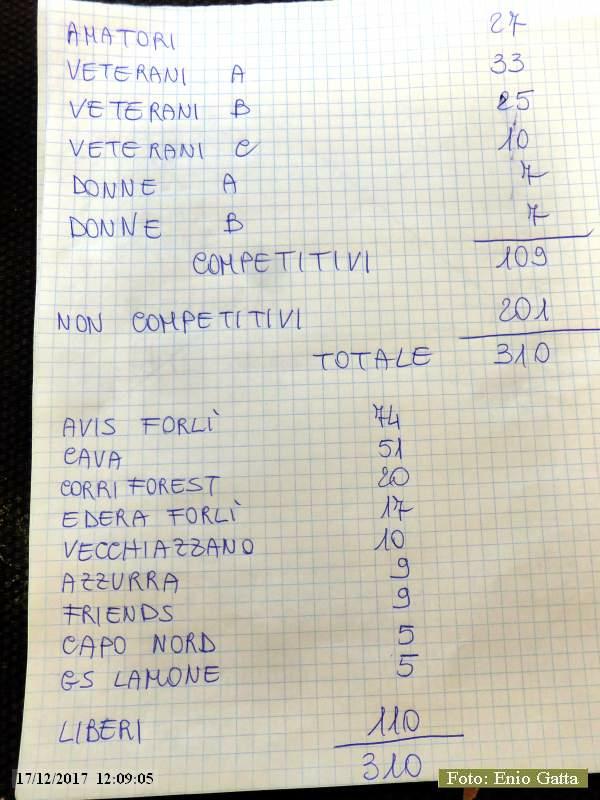 AMATORI 27
VETERANI A 33
VETERANI B 25
VETERANI C 10
DONNE A 7
DONNE B 7
COMPETITIVI 109
NON COMPETITIVI 201
TOTALE 310
AVIS FORLÌ 74
CAVA 51
CORRI FOREST 20
EDERA FORLÌ 17
VECCHIAZZANO 10
AZZURRA 9
FRIENDS 9
CAPO NORD 5
GS LAMONE 5
LIBERI 110
310
17/12/2017 12:09:05
Foto: Enio Gatta